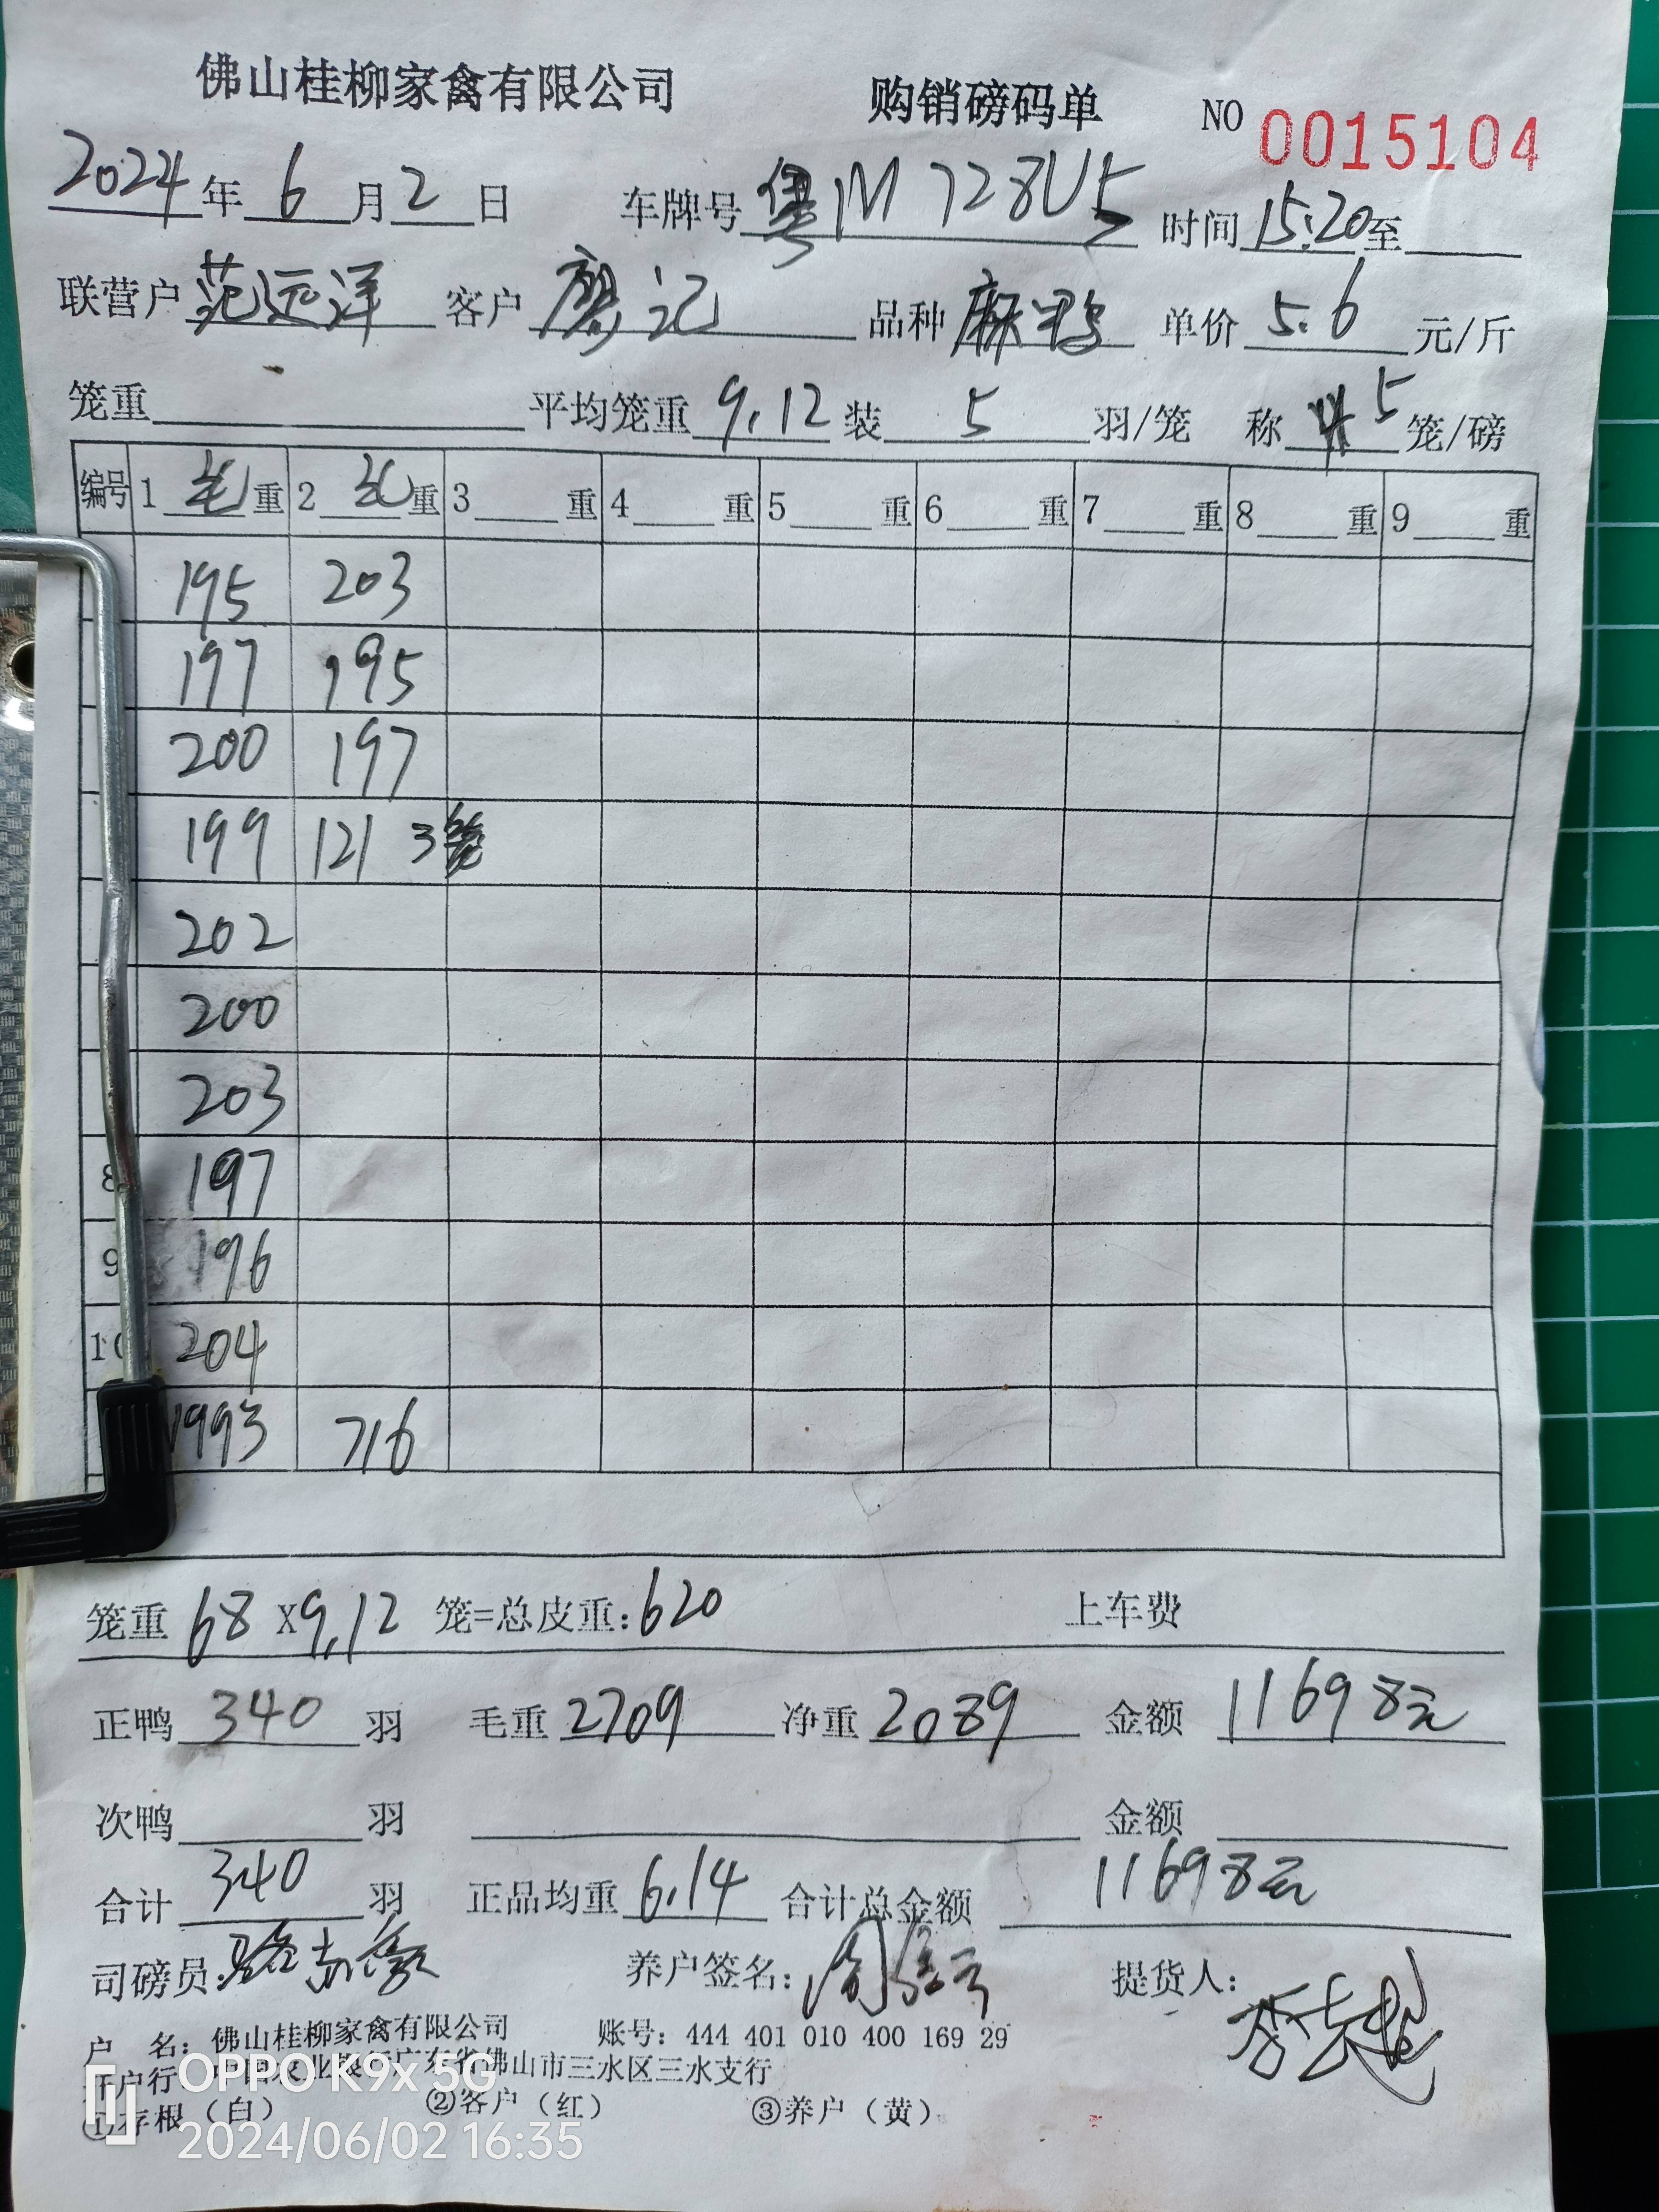 佛山桂柳家禽有限公司 购销磅码单 NO 0015104
2024年6月2日 车牌号粤M728U5 时间15:20至
联营户范远洋 客户廖记 品种麻鸭 单价5.6元/斤
笼重 平均笼重9.12装5羽/笼 称5笼/磅
编号 1毛重 2毛重 3重 4重 5重 6重 7重 8重 9重
195 203
197 195
200 197
199 121 3笼
202
200
203
8 197
9 196
10 204
1993 716
笼重68X9.12笼=总皮重:620 上车费
正鸭340羽 毛重2709净重2089 金额11698元
次鸭 羽 金额
合计340羽 正品均重6.14合计总金额11698元
司磅员: 养户签名: 提货人:
户 名:佛山桂柳家禽有限公司 账号:444 401 010 400 169 29
开户行:中国农业银行广东省佛山市三水区三水支行
①存根(白) ②客户(红) ③养户(黄)
OPPO K9x 5G
2024/06/02 16:35